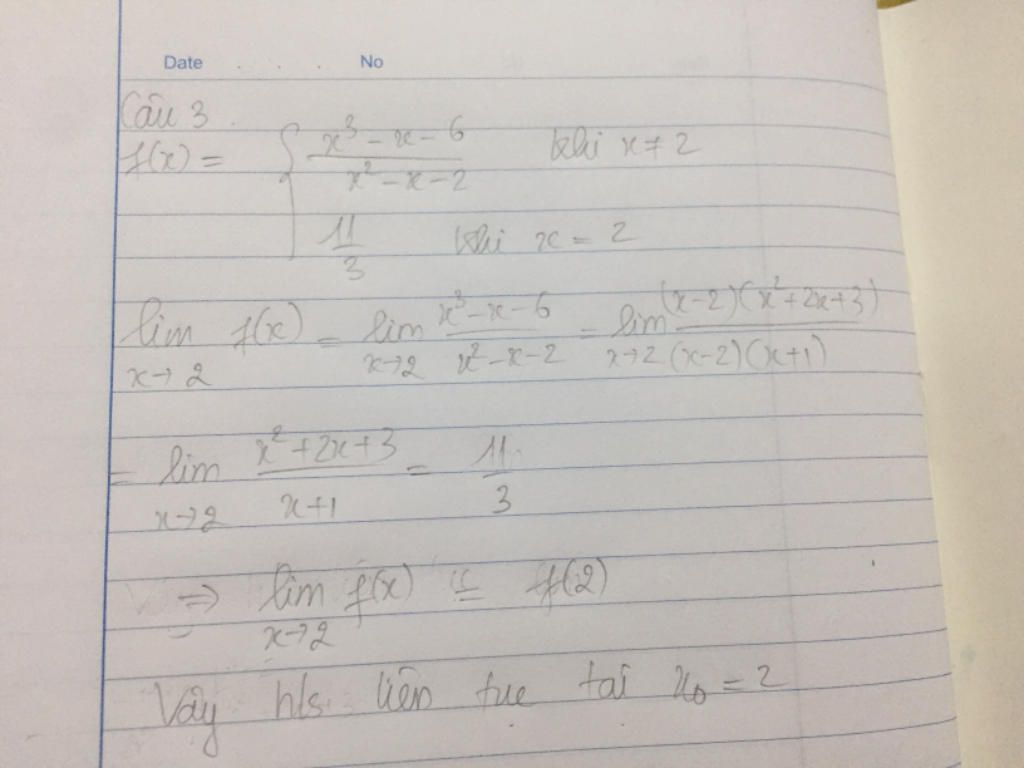 Date . . . . No
Câu 3.
f(x) = { (x³ - x - 6)/(x² - x - 2) khi x ≠ 2
11/3 khi x = 2
lim x→2 f(x) = lim x→2 (x³ - x - 6)/(x² - x - 2) = lim x→2 (x-2)(x²+2x+3)/(x-2)(x+1)
= lim x→2 (x²+2x+3)/(x+1) = 11/3
⇒ lim x→2 f(x) = f(2)
Vậy h/s liên tục tại x₀ = 2